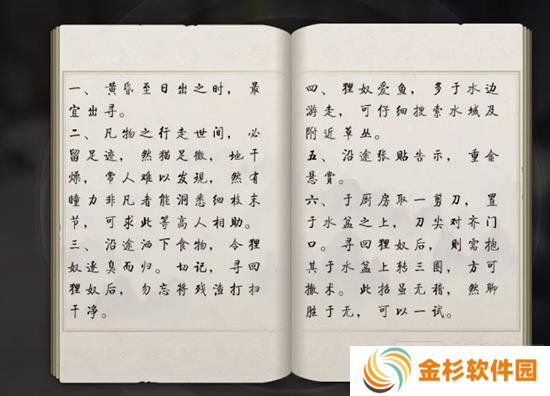 一、黄昏至日出之时，最
宜出寻。
二、凡物之行走世间，必
留足迹，然猫足微，地干
燥，常人难以发现，然有
瞳力非凡者能洞悉细枝末
节，可求此等高人相助。
三、沿途洒下食物，令狸
奴逐臭而归。切记，寻回
狸奴后，勿忘将残渣打扫
干净。
四、狸奴爱鱼，多于水边
游走，可仔细搜索水域及
附近草丛。
五、沿途张贴告示，重金
悬赏。
六、于厨房取一剪刀，置
于水盆之上，刀尖对齐门
口。寻回狸奴后，则需抱
其于水盆上转三圈，方可
撤术。此招虽无稽，然聊
胜于无，可以一试。
金杉软件园